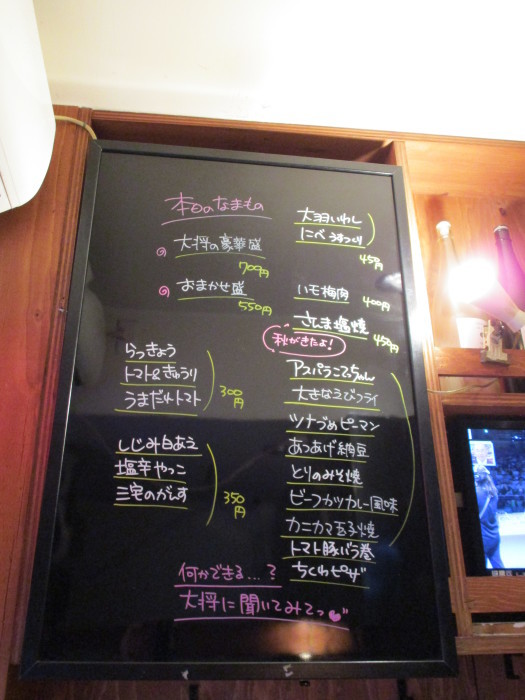 本日のなまもの
大将の豪華盛
700円
おまかせ盛
550円
らっきょう
トマト&きゅうり
うまだれトマト
300円
しじみ白あえ
塩辛やっこ
350円
大羽いわし
にべ うすづくり
450円
いモ梅肉
400円
さんま塩焼
450円
秋がきたよ!
アスパラこてっちゃん
大きなえびフライ
ツナづめピーマン
あつあげ納豆
とりのみそ焼
ビーフカツカレー風味
カニカマ玉子焼
トマト豚バラ巻
ちくわピザ
何ができる...?
大将に聞いてみてっ